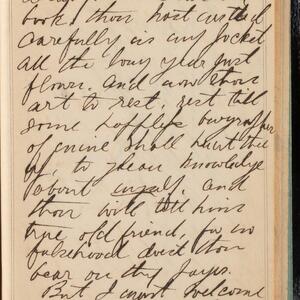 book. thou hast rested
carefully in my pocket
all the long year just
flown. And now thou
art to rest, rest till
some hapless owyrapher
of mine shall hunt thee
up, to glean knowledge
about myself. and
thou will tell him
true old friend, for no
falsehood doest thou
bear on thy pages.
But I must welcome